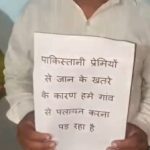 पाकिस्तानी प्रेमियों
से जान के खतरे
के कारण हमे गाव
से पलायन करना
पड रहा है